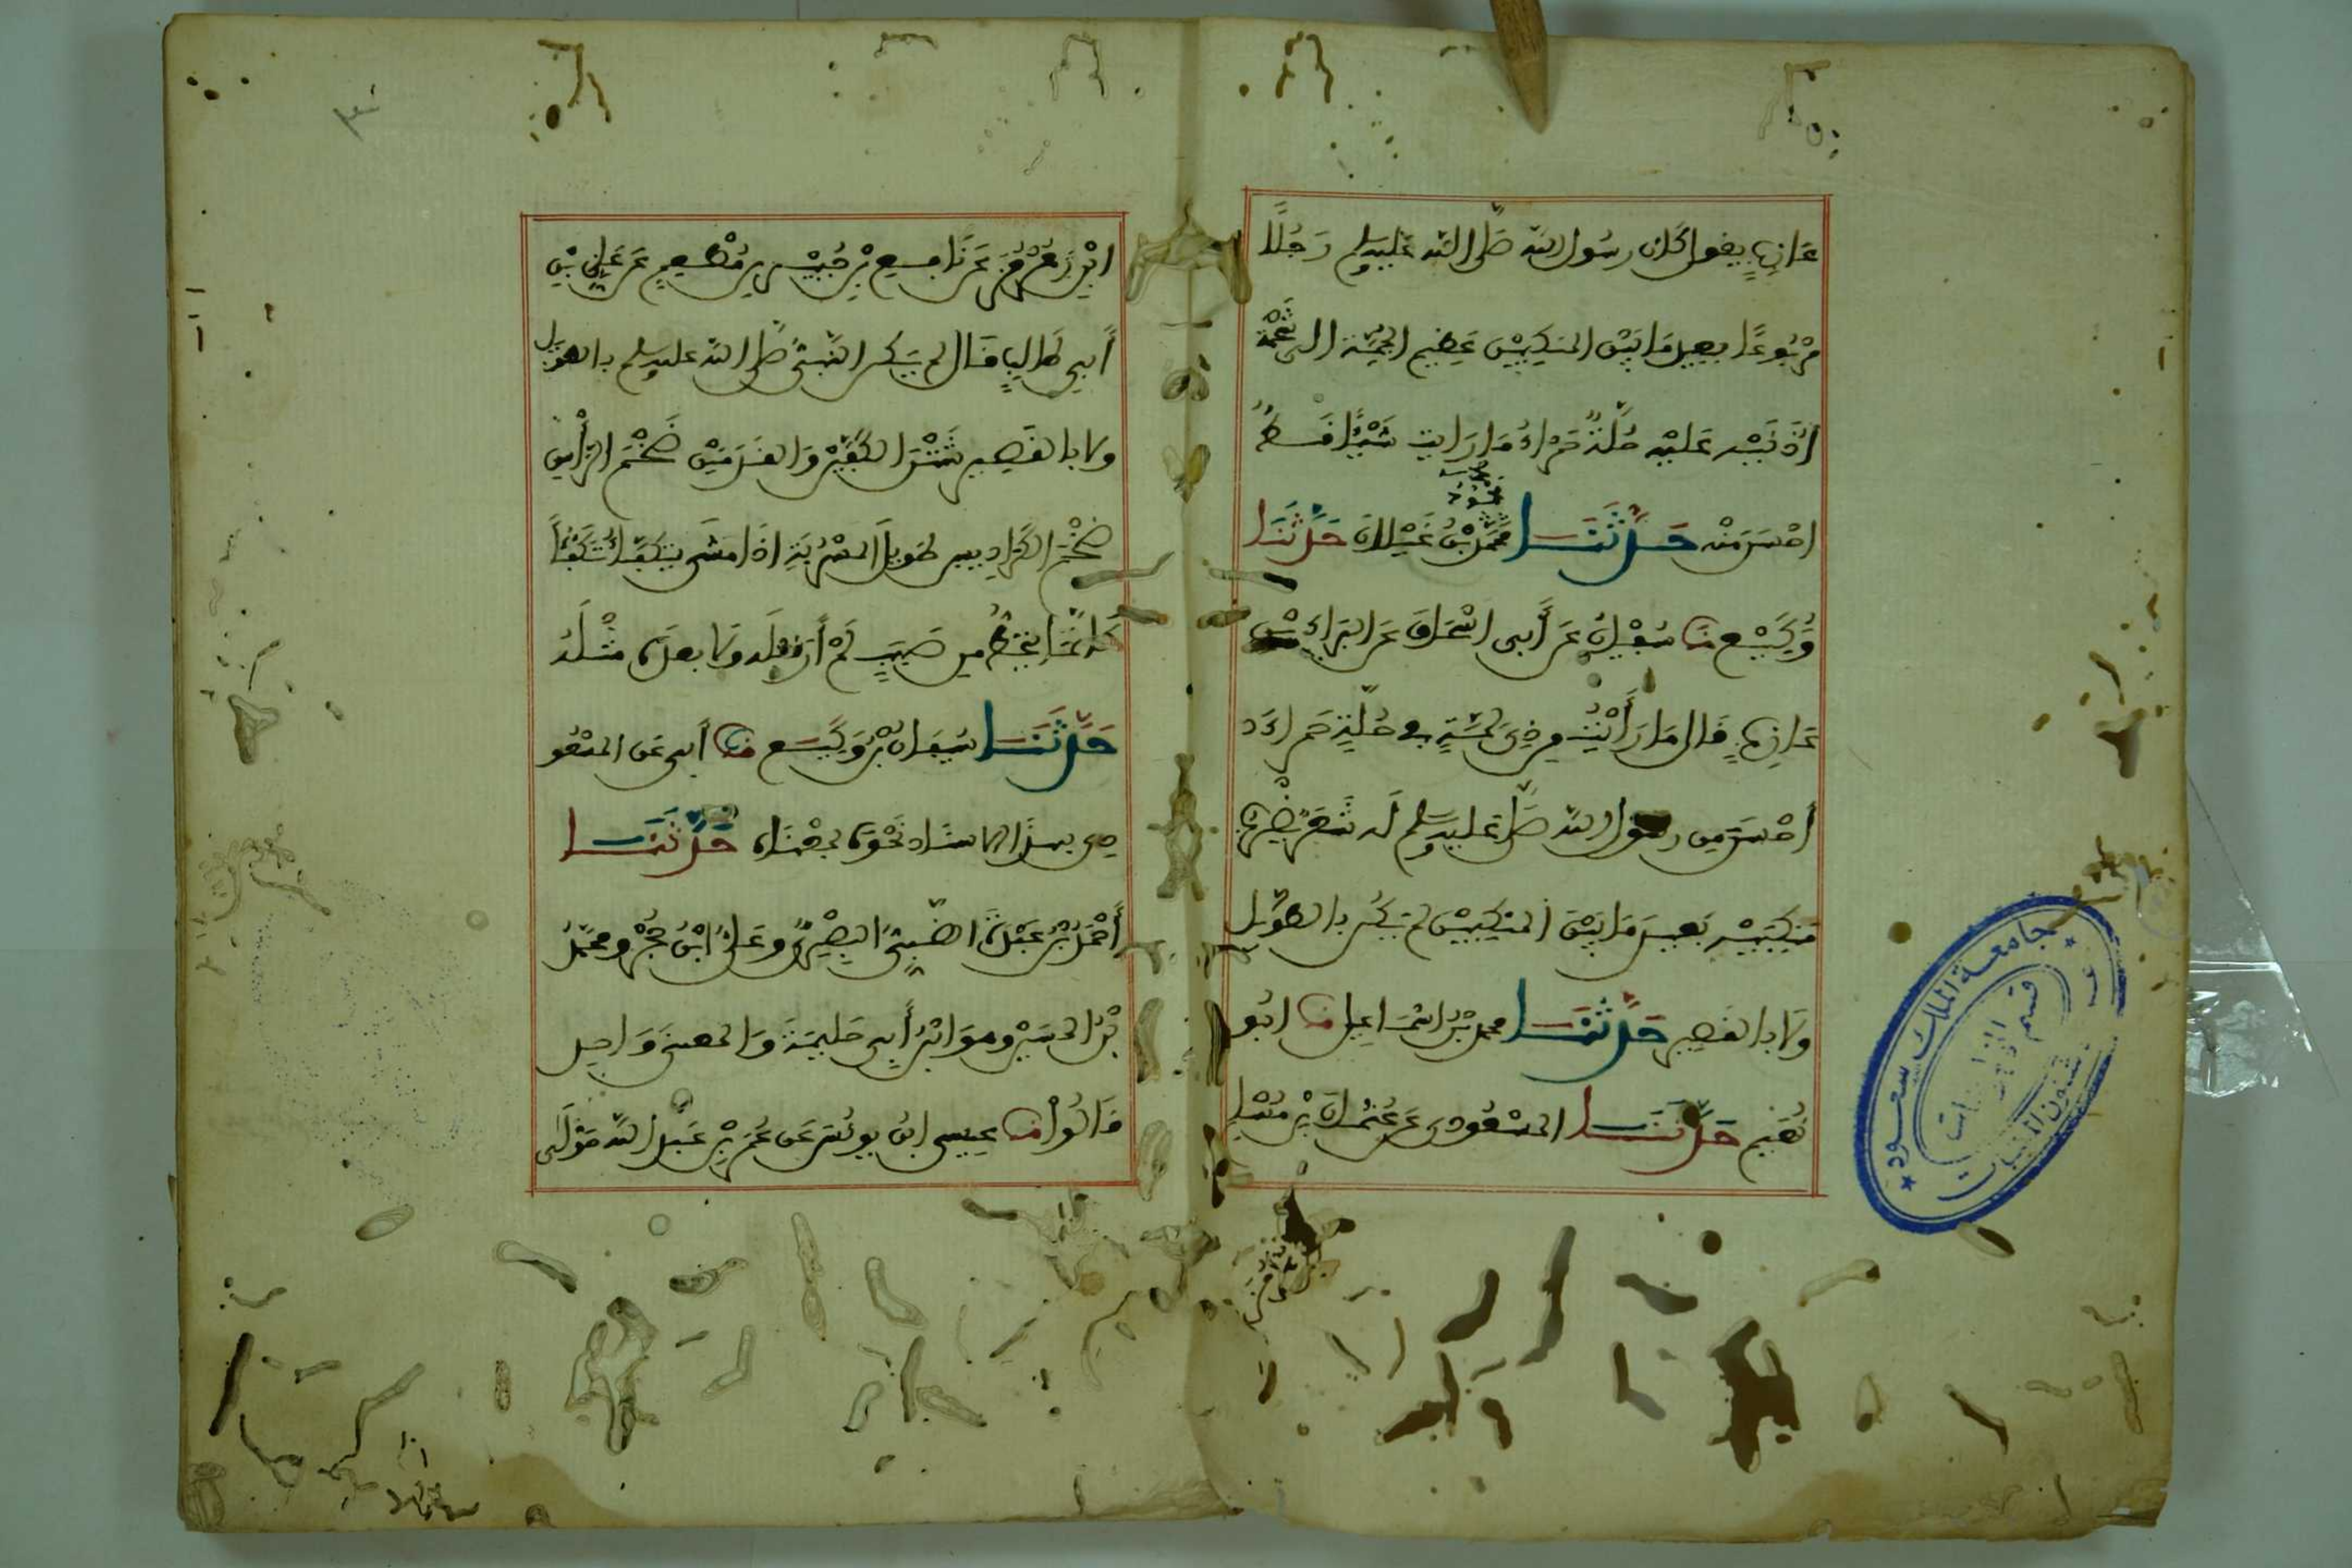 عَازِبٍ يقول كان رسُول الله صَلَّى الله عَليه وسلم رَجُلًا
مَرْبُوعًا بعيد مَا بَيْنَ المنكِبَيْنِ عَظِيم الجُمَّة الى شَحْمَةِ
أُذُنَيْه عَليْه حُلَّةٌ حَمْرَاءُ مَا رَايت شَيْئًا قَطُّ
احْسَن مَنْه حَدَّثَنَا محمُودُ بْنُ غَيْلانَ حَدَّثَنَا
وَكِيْع نا سُفيَانُ عَن أَبي اسْحَاقَ عَن البَرَاءِ بْنِ
عَازبٍ قال مَا رَأَيْتُ مِن ذِي لِمَّةٍ في حُلَّةٍ حَمراءَ
أحْسَنَ مِن رسُول الله صَلَّى عَليه وسلم لَه شَعَرٌ يَضْرِبُ
مَنكِبَيْه بَعيدَ مَا بَيْنَ المنكِبَيْنِ لم يَكُن بالطوِيل
ولا بالقصِير حَدَّثَنَا محمد بْنُ اسْمَاعِيل نا ابُو
نُعَيم حَدَّثَنَا المَسْعُودي عَن عُثمَانَ بْنِ مُسْلِم
ابْنِ هُرْمُزَ عَن نَافِع بْنِ جُبَيْر بن مُطْعِمٍ عَن عَلِي بْنِ
أَبي طالِبٍ قَال لم يَكن النَّبيُّ صَلى الله عليه وسلم بالطوِيل
ولا بالقصِير شَثْنَ الكَفَّيْنِ وَالقَدَمَيْنِ ضَخْمَ الرَّأْسِ
ضَخْمَ الكَرَادِيس طوِيلَ المَسْرُبَةِ اذَا مَشَى تَكَفَّأَ تَكَفُّأً
كَأَنَّمَا يَنْحَطُّ مِن صَبَبٍ لَمْ أَرَ قَبْلَه ولا بعدَهُ مثْلَهُ
حَدَّثَنَا سُفيَانُ بْنُ وَكِيع نا أبي عَن المسْعُو
دِي بهذَا الاسنَاد نَحْوَهُ بمعْنَاه حَدَّثَنَا
أَحْمَدُ بْنُ عَبْدَةَ الضَّبِّيُّ البَصْرِيُّ وعَليُّ ابْنُ حُجْرٍ ومحمَّدُ
بْنُ الحُسَيْنِ وهوَ ابْنُ أَبي حَلِيمَةَ وَالمعنَى وَاحِد
قَالُوا نا عِيسى ابنُ يونُسَ عَن عُمَرَ بْنِ عَبْدِ الله مَوْلَى
جامعة الملك سعود
قسم
شئون المكتبات